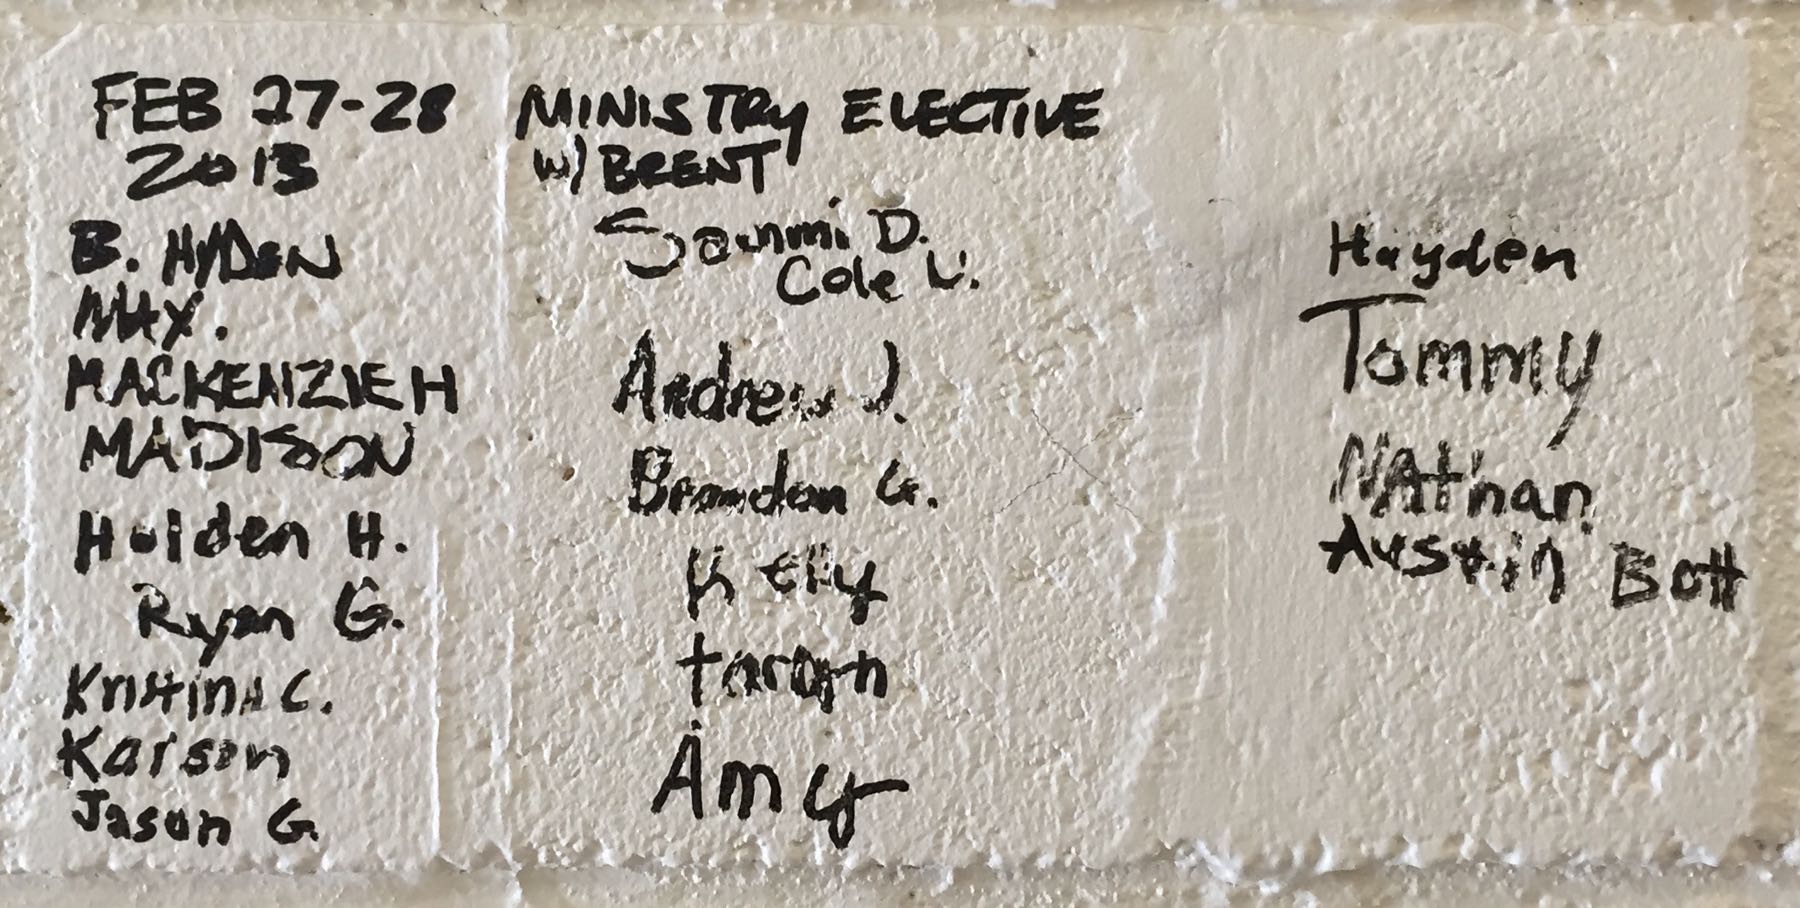 FEB 27-28
2013
B. HYDEN
MAX.
MACKENZIE H
MADISON
Holden H.
Ryan G.
Kristina C.
Karson
Jason G.
MINISTRY ELECTIVE
W/ BRENT
Sammi D.
Cole L.
Andrew J.
Brandon G.
Kelly
taryn
Amy
Hayden
Tommy
NAthan
Austin Bott